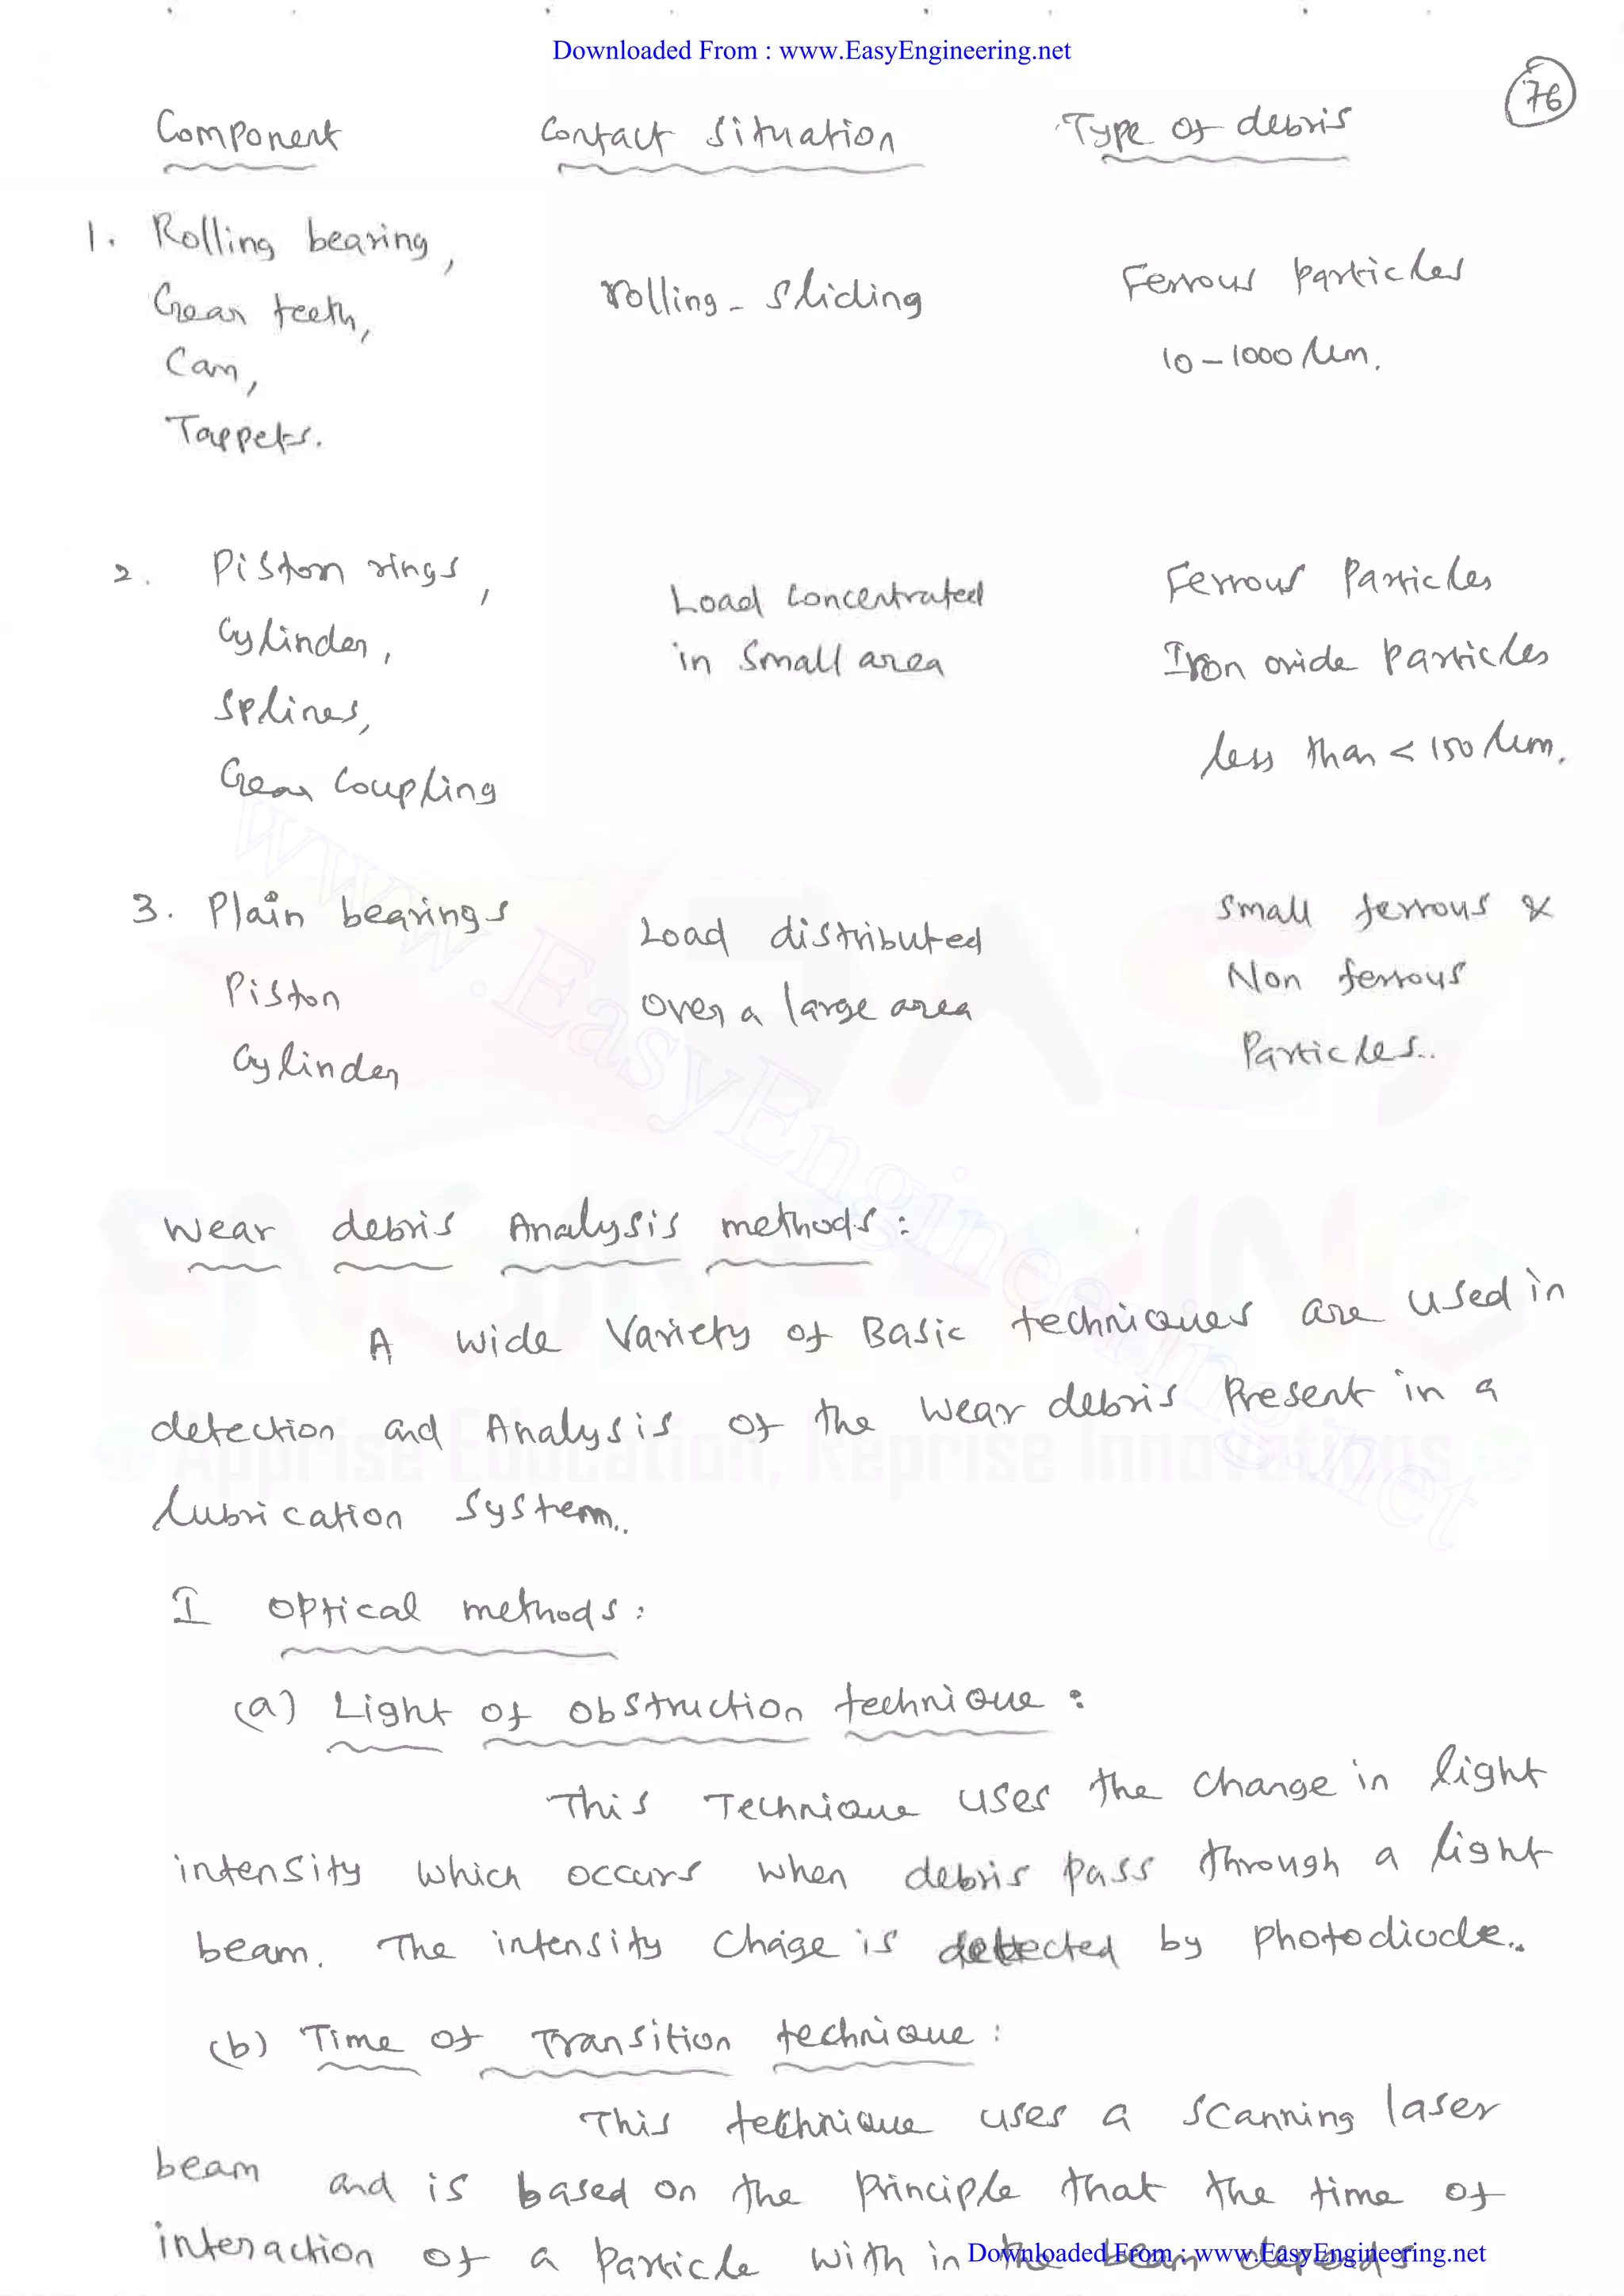 Downloaded From : www.EasyEngineering.net
76
Component Contact Situation Type of debris
1. Rolling bearing,
Gear teeth,
Cam,
Tappets.
rolling - sliding
Ferrous particles
10 – 1000 μm.
2. Piston rings,
Cylinder,
Splines,
Gear Coupling
Load Concentrated
in Small area
Ferrous Particles
Iron oxide Particles
less than < 150 μm.
3. Plain bearings
Piston
Cylinder
Load distributed
Over a large area
Small ferrous &
Non ferrous
Particles..
Wear debris Analysis methods :
A wide Variety of Basic techniques are used in
detection and Analysis of the Wear debris Present in a
lubrication System..
I Optical methods :
(a) Light of obstruction technique :
This Technique uses the change in light
intensity which occurs when debris pass through a light
beam. The intensity chage is detected by photodiode..
(b) Time of Transition technique :
This technique uses a scanning laser
beam and is based on the Principle that the time of
interaction of a particle with in the beam depends
Downloaded From : www.EasyEngineering.net
www.EasyEngineering.net
EASY
ENGINEERING
Apprise Education, Reprise Innovations